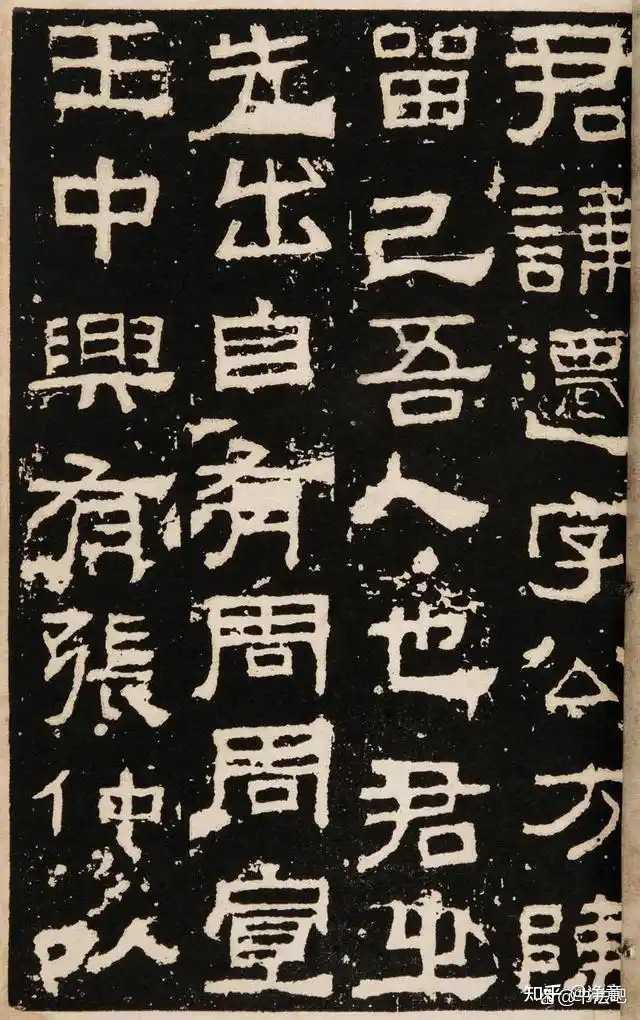 君諱遷字公方陳
留己吾人也君之
先出自有周周宣
王中興有張仲以
知乎